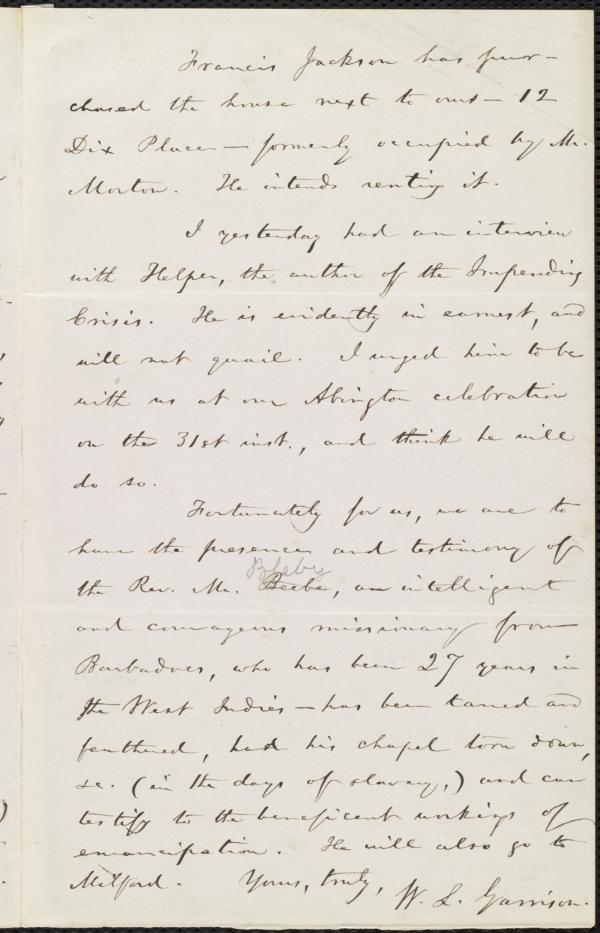 Francis Jackson has pur-
chased the house next to ours — 12
Dix Place — formerly occupied by Mr.
Morton. He intends renting it.
I yesterday had an interview
with Helper, the author of the Impending
Crisis. He is evidently in earnest, and
will not quail. I urged him to be
with us at our Abington celebration
on the 31st inst., and think he will
do so.
Fortunately for us, we are to
have the presence and testimony of
Bleby
the Rev. Mr. Beebe, an intelligent
and courageous missionary from
Barbadoes, who has been 27 years in
the West Indies — has been tarred and
feathered, had his chapel torn down,
&c. (in the days of slavery,) and can
testify to the beneficent workings of
emancipation. He will also go to
Milford. Yours, truly, W. L. Garrison.